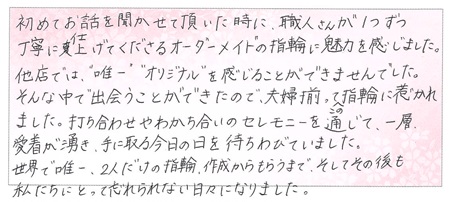 初めてお話を聞かせて頂いた時に、職人さんが1つずつ
丁寧に仕上げてくださるオーダーメイドの指輪に魅力を感じました。
他店では、"唯一" "オリジナル"を感じることができませんでした。
そんな中で出会うことができたので、夫婦揃って指輪に惹かれ
ました。打ち合わせやわかち合いのセレモニーを通じて、一層、
この
愛着が湧き、手に取る今日の日を待ちわびていました。
世界で唯一、2人だけの指輪、作成からもらうまで、そしてその後も
私たちにとって忘れられない日々になりました。